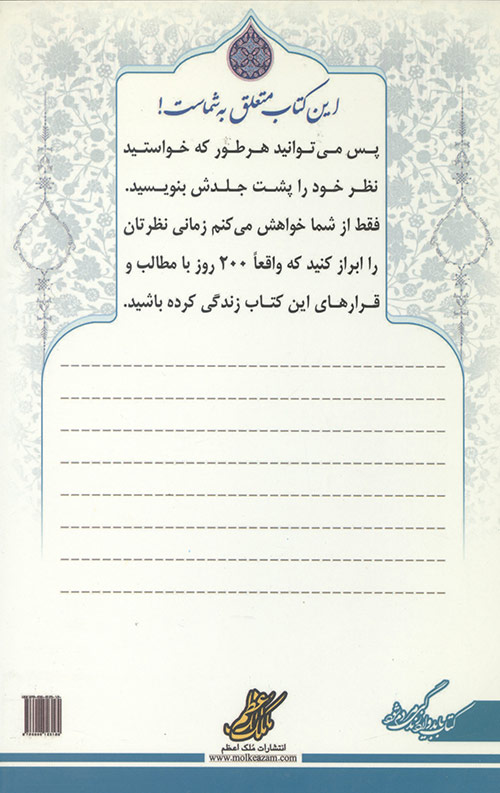 این کتاب متعلق به شماست!
پس می‌توانید هرطور که خواستید
نظر خود را پشت جلدش بنویسید.
فقط از شما خواهش می‌کنم زمانی نظرتان
را ابراز کنید که واقعاً ۲۰۰ روز با مطالب و
قرارهای این کتاب زندگی کرده باشید.
ملک اعظم
انتشارات مُلک اعظم
www.molkeazam.com